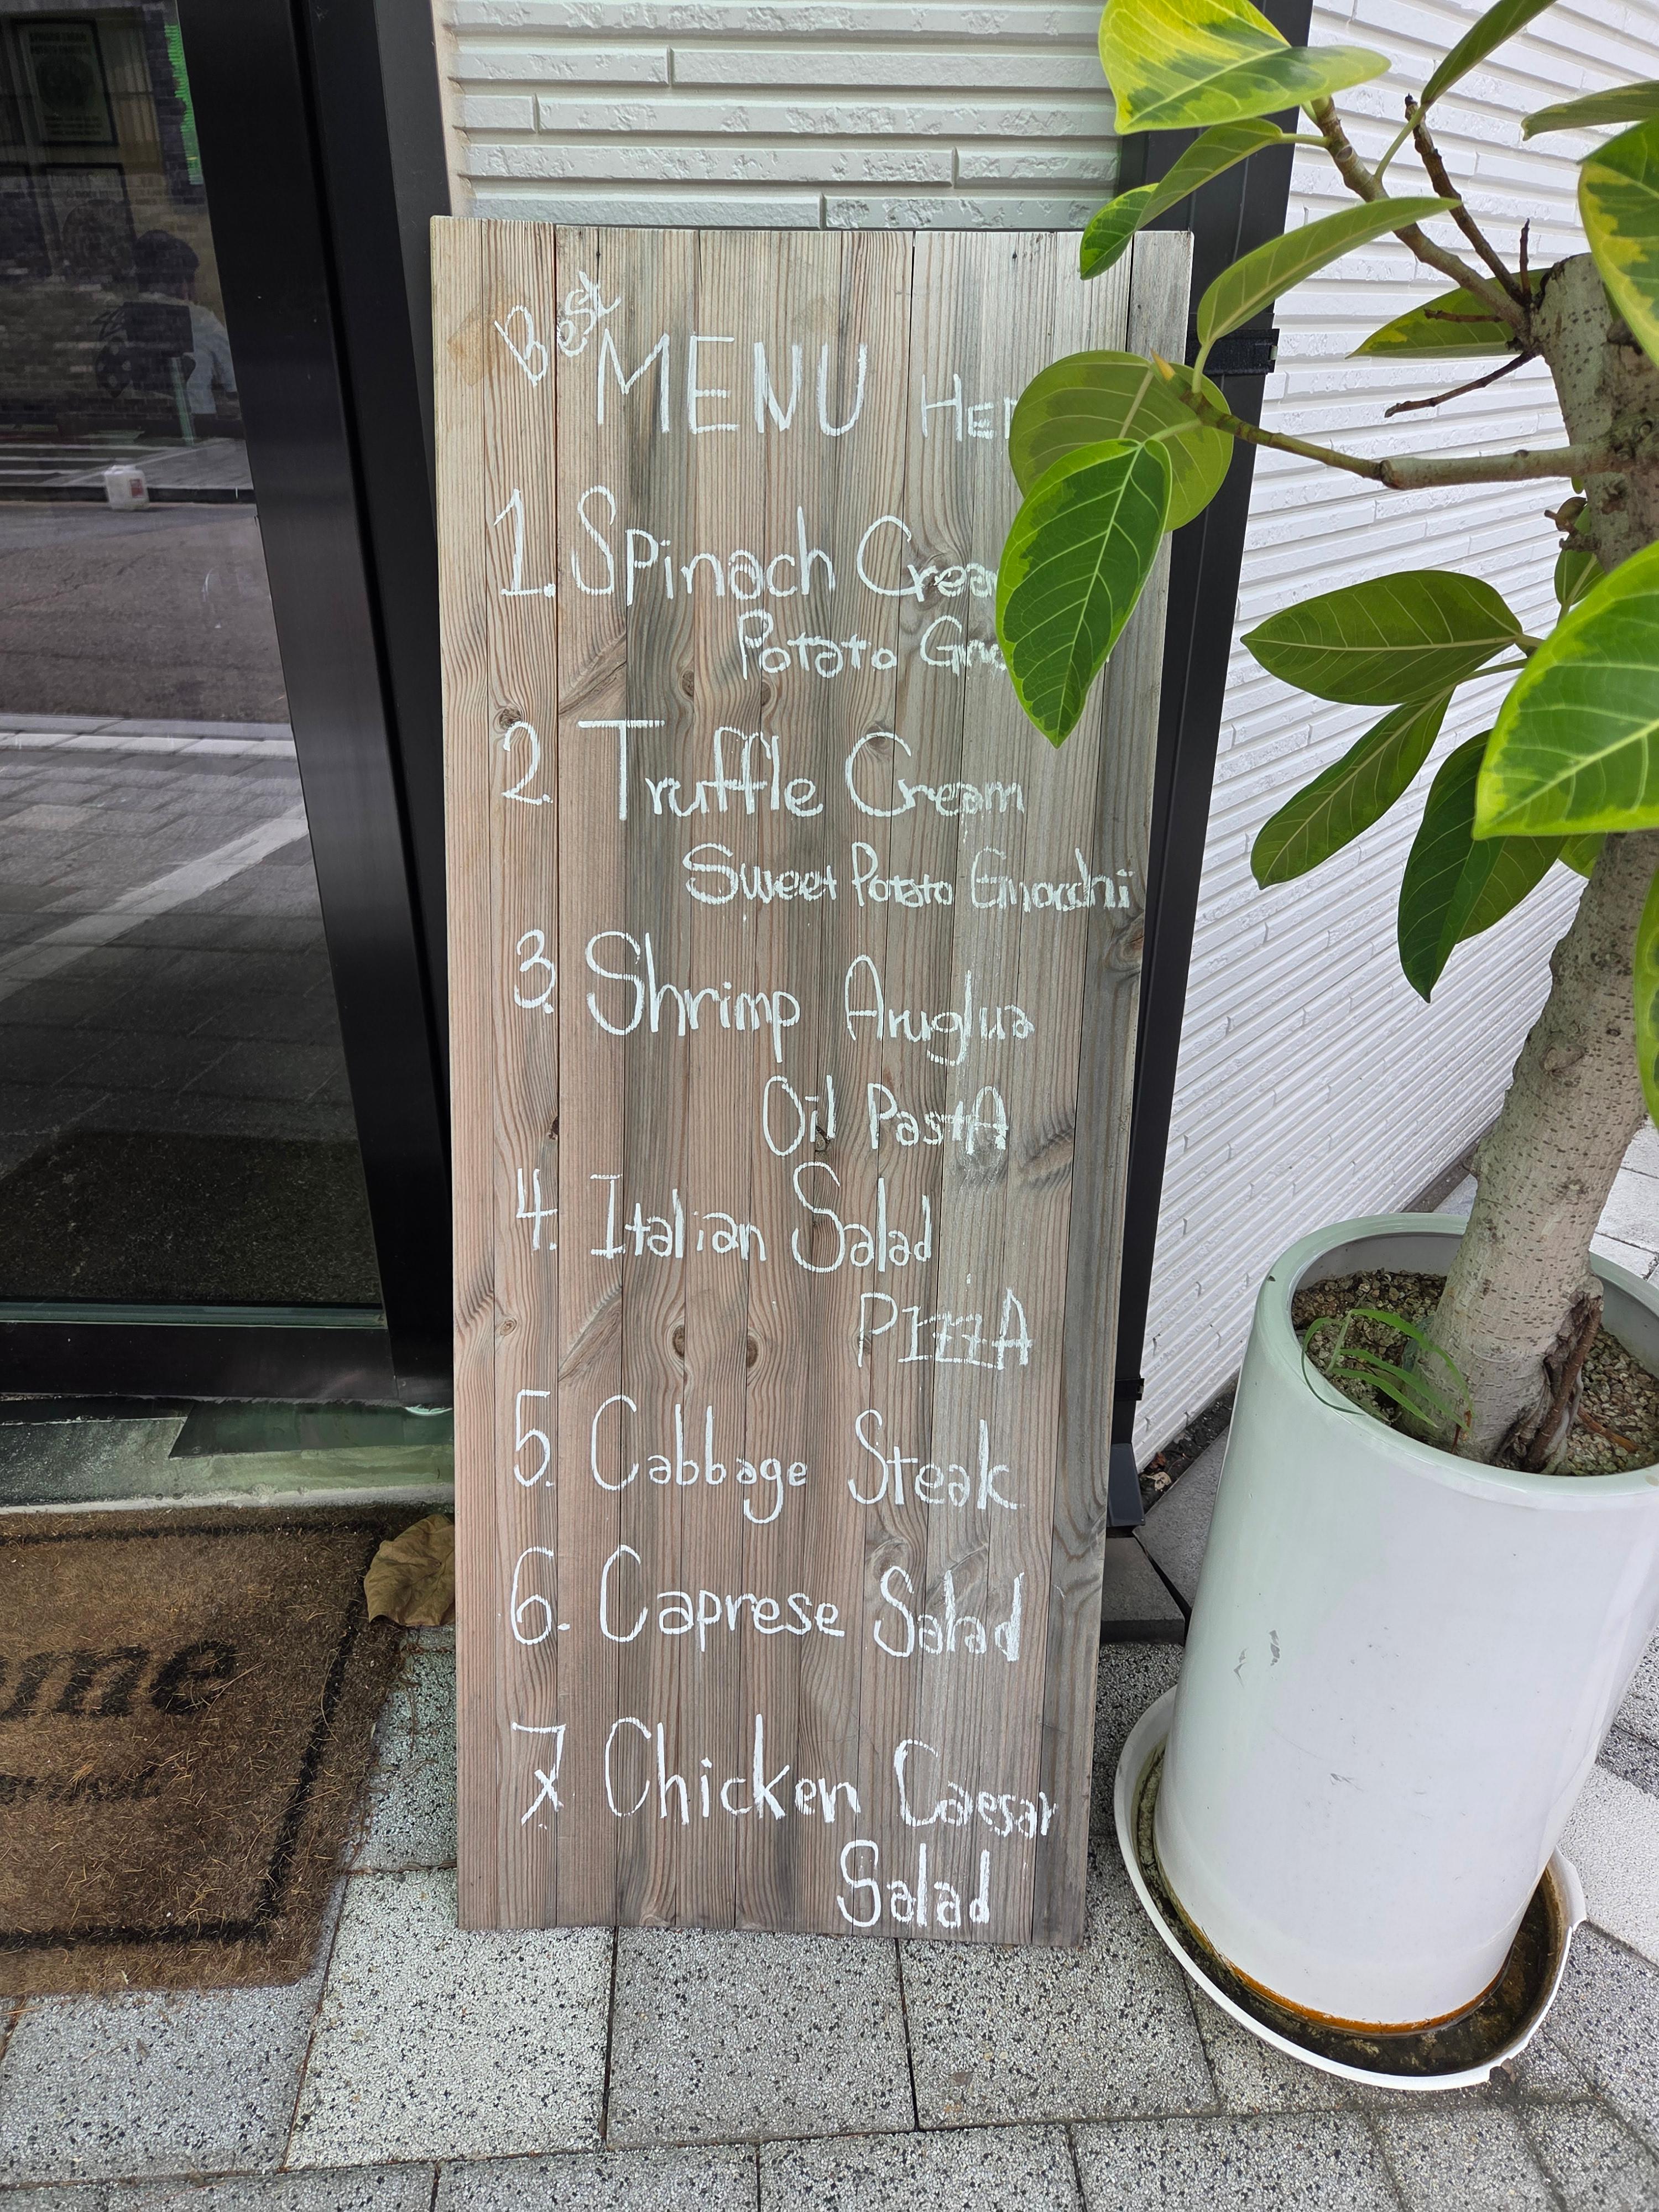 Best
MENU
1. Spinach
Potato
2. Truffle Cream
Sweet Potato Gnocchi
3. Shrimp Aruglua
Oil PastA
4. Italian Salad
PIzzA
5. Cabbage Steak
6. Caprese Salad
7. Chicken Caesar
Salad
me